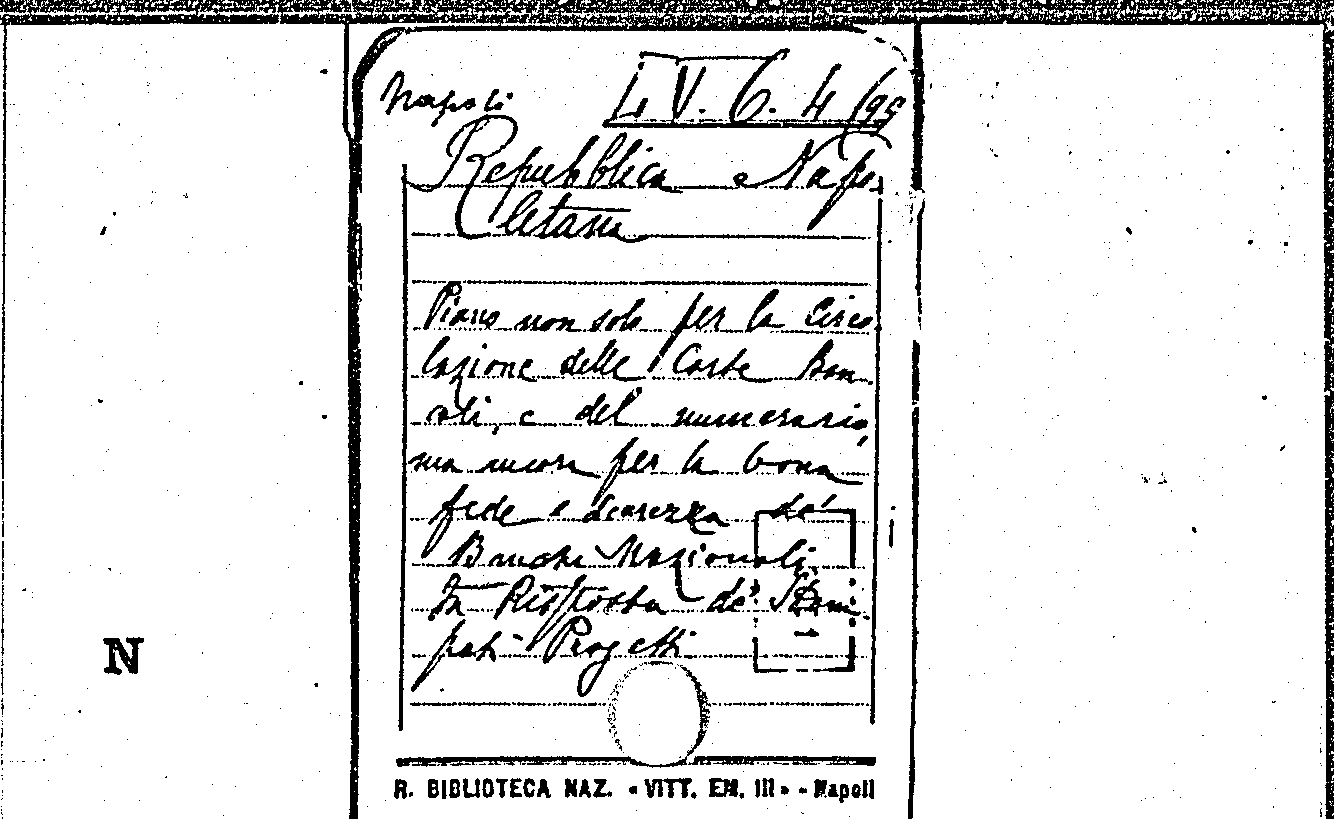 Napoli L. V. 6. 4 (95
Repubblica Napo-
letana
Piano non solo per la Circo-
lazione delle Carte Ban-
cali, e del numerario,
ma ancora per la bona
fede e sicurezza de'
Banchi Nazionali
In Risposta de' Stam-
pati Progetti
N
R. BIBLIOTECA NAZ. «VITT. EM. III» - Napoli